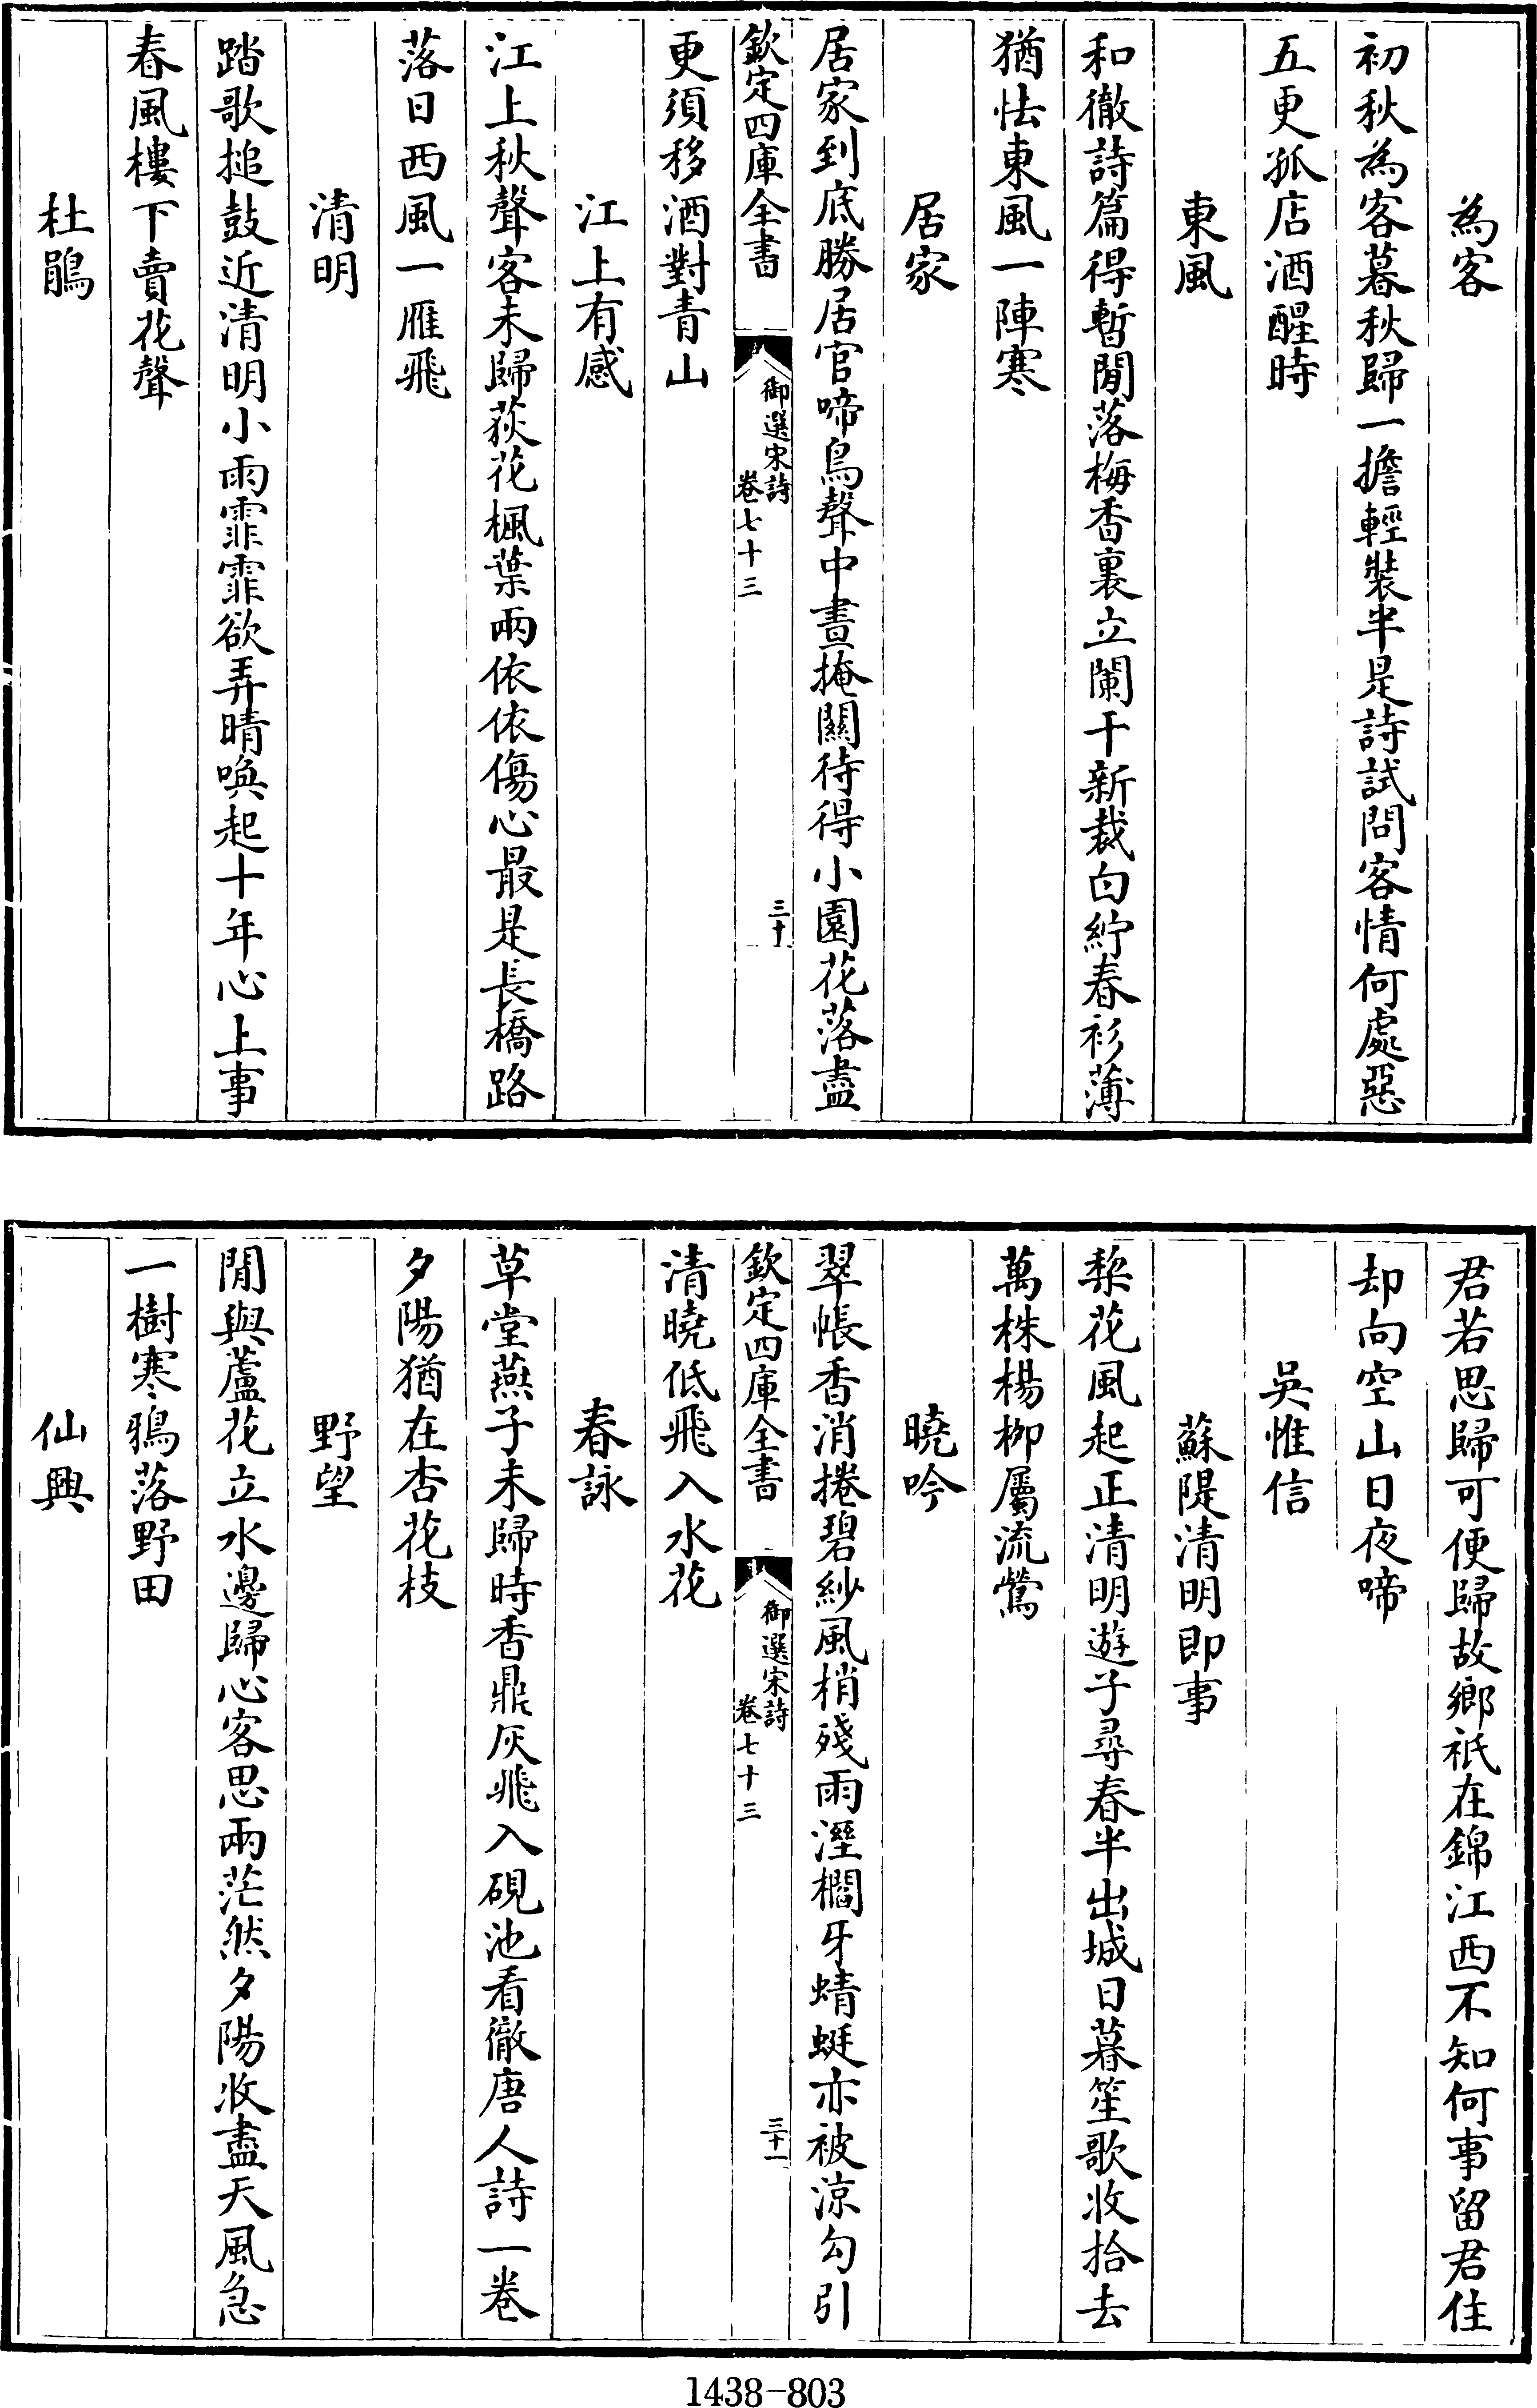 為客
初秋為客暮秋歸一擔輕裝半是詩試問客情何處惡
五更孤店酒醒時
東風
和徹詩篇得暫閒落梅香裏立闌干新裁白紵春衫薄
猶怯東風一陣寒
居家
居家到底勝居官啼鳥聲中晝掩關待得小園花落盡
欽定四庫全書
御選宋詩
卷七十三
三十
更須移酒對青山
江上有感
江上秋聲客未歸荻花楓葉兩依依傷心最是長橋路
落日西風一雁飛
清明
踏歌搥鼓近清明小雨霏霏欲弄晴喚起十年心上事
春風樓下賣花聲
杜鵑
君若思歸可便歸故鄉祇在錦江西不知何事留君住
却向空山日夜啼
吳惟信
蘇隄清明即事
棃花風起正清明遊子尋春半出城日暮笙歌收拾去
萬株楊柳屬流鶯
曉吟
翠帳香消捲碧紗風梢殘雨溼櫩牙蜻蜓亦被涼勾引
欽定四庫全書
御選宋詩
卷七十三
三十一
清曉低飛入水花
春詠
草堂燕子未歸時香鼎灰飛入硯池看徹唐人詩一卷
夕陽猶在杏花枝
野望
閒與蘆花立水邊歸心客思兩茫然夕陽收盡天風急
一樹寒鴉落野田
仙興
1438-803